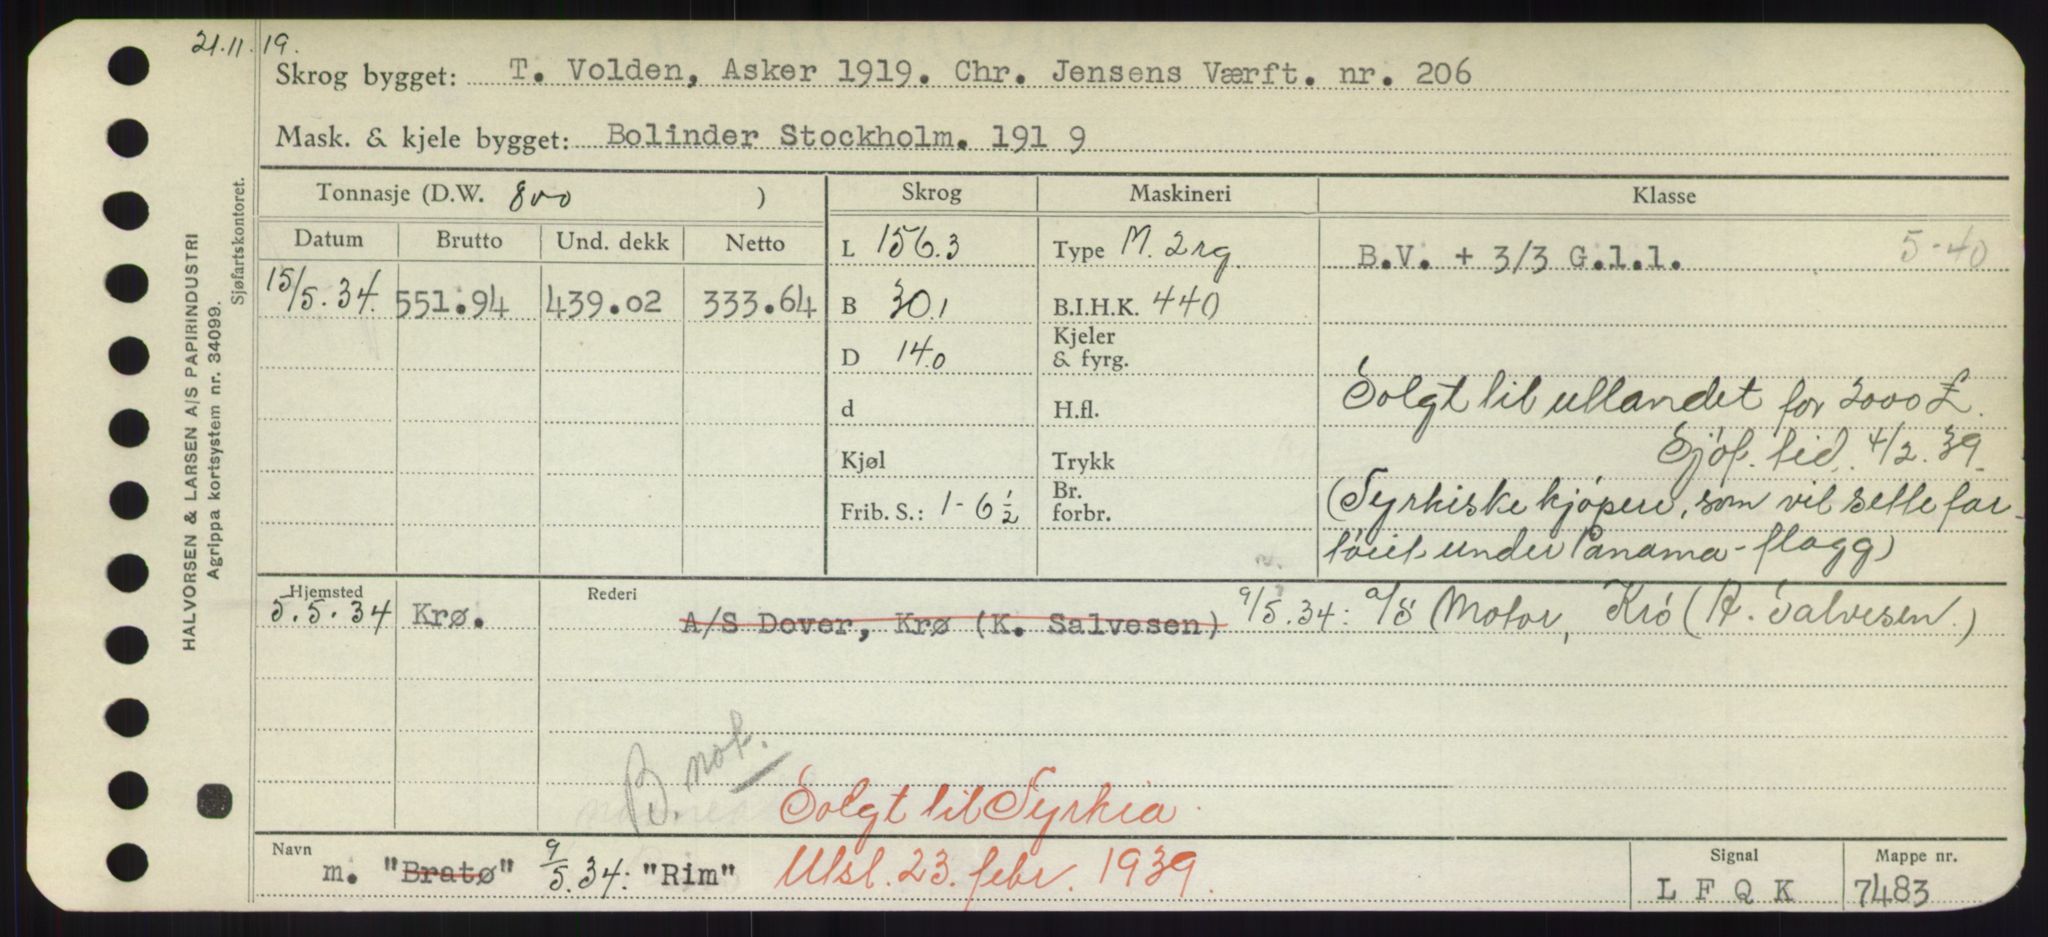 21.11.19.
Skrog bygget: T. Volden, Asker 1919. Chr. Jensens Værft. nr. 206
Mask. & kjele bygget: Bolinder Stockholm. 191 9
HALVORSEN & LARSEN A/S PAPIRINDUSTRI
Agrippa kortsystem nr. 34099.
Sjøfartskontoret.
Tonnasje (D.W. 800 ) Skrog Maskineri Klasse
Datum Brutto Und. dekk Netto
L 156.3 Type M. 2 rg. B.V. + 3/3 G.l.l. 5-40
15/5.34. 551.94 439.02 333.64 B 30.1 B.I.H.K. 440
D 14.0 Kjeler & fyrg.
d H.fl. Solgt til utlandet for 2000 £.
Kjøl Trykk Sjöf. tid. 4/2.39.
Frib. S.: 1-6 1/2 Br. forbr. (Syrkiske kjøpere, som vil sette far-
töiet under Panama-flagg)
Hjemsted Rederi
5.5.34 Krø. A/S Dover, Krø (K. Salvesen) 9/5.34: A/S Motor, Krö (K. Salvesen.)
B. not.
Solgt til Syrkia.
Navn Signal Mappe nr.
m. "Bratø" 9/5.34: "Rim" Utsl. 23. febr. 1939. L F Q K 7483